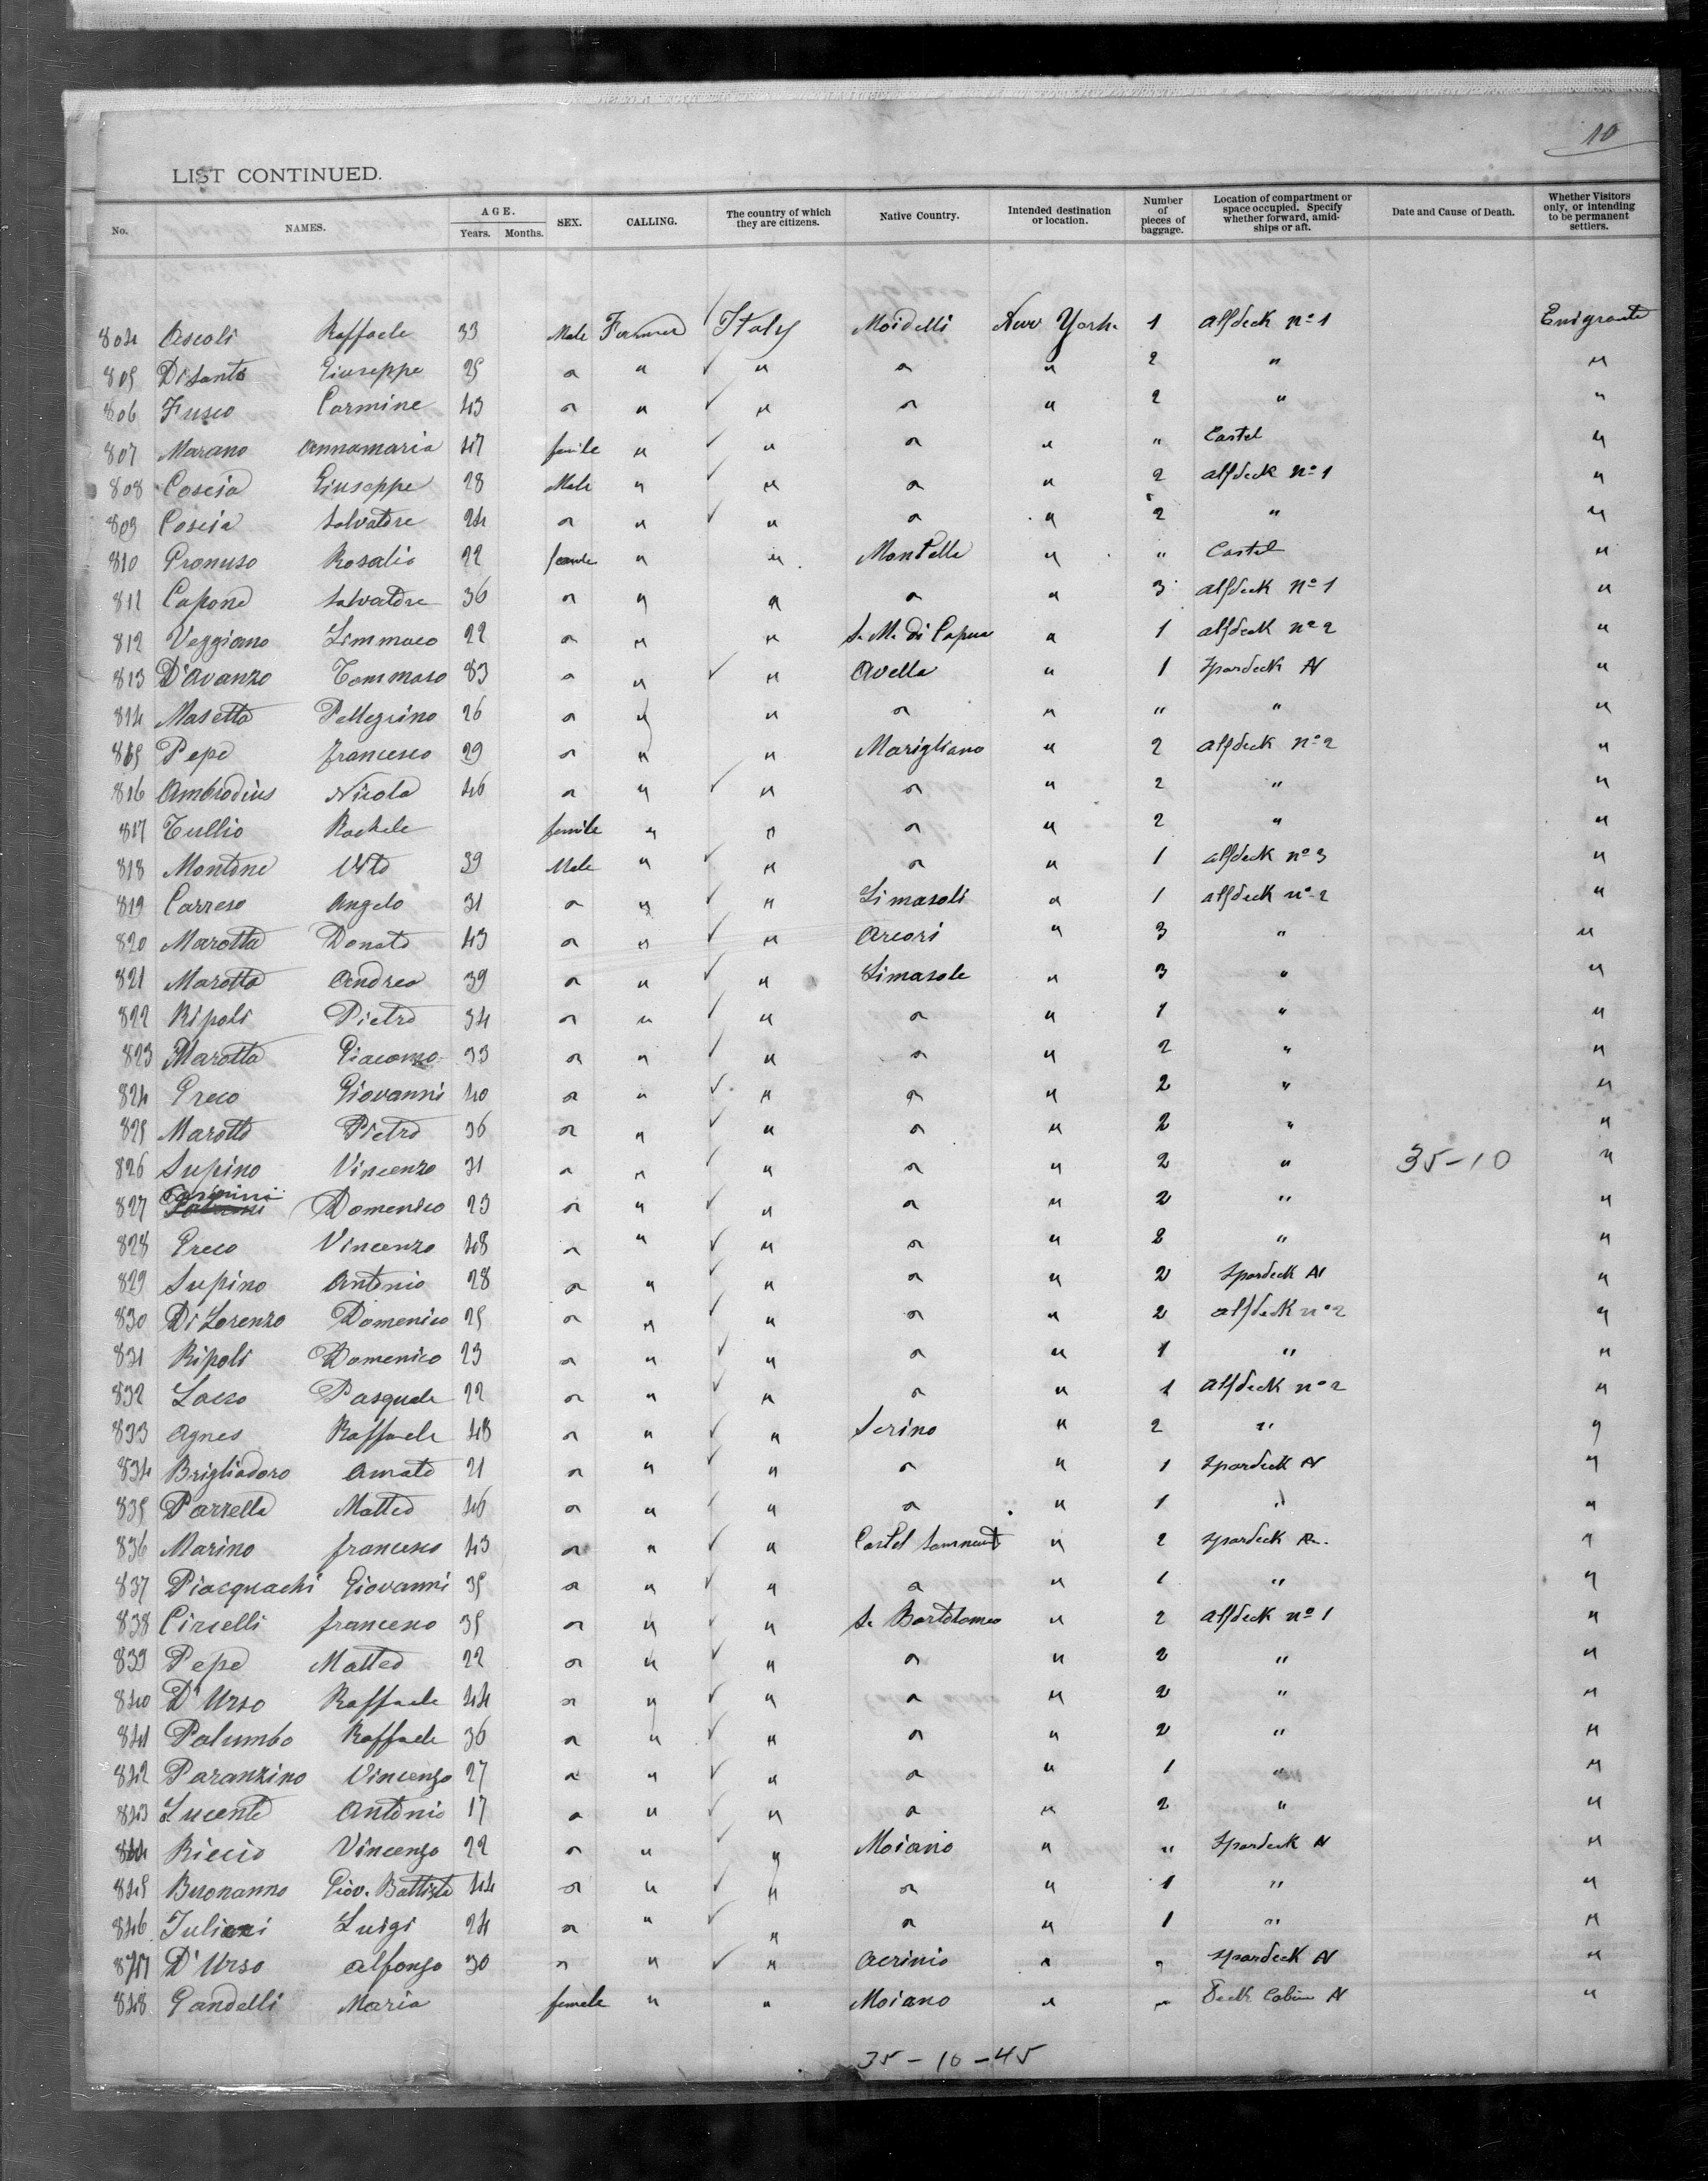 10
LIST CONTINUED.
No. NAMES. AGE. Years. Months. SEX. CALLING. The country of which they are citizens. Native Country. Intended destination or location. Number of pieces of baggage. Location of compartment or space occupied. Specify whether forward, amidships or aft. Date and Cause of Death. Whether Visitors only, or intending to be permanent settlers.
804 Ascoli Raffaele 33 Male Farmer Italy New York 1 Alfdeck No 1 Emigrante
805 Di Santo Giuseppe 25 " " " " " 2 " "
806 Fusco Carmine 43 " " " " " 2 " "
807 Marano Annamaria 47 " " " " " Castel "
808 Coscia Giuseppe 28 Male " " " " 2 alfdeck No 1 "
809 Coscia Salvatore 24 " " " " " 2 " "
810 Rosalia 22 " " Montella " " Castel "
811 Capone Salvatore 36 " " " " " 3 alfdeck No 1 "
812 Veggiano 22 " " " S. M. di Capua " 1 alfdeck no 2 "
813 D'Avanzo Tommaso 33 " " " Avella " 1 Spardeck N "
814 Masetta Pellegrino 26 " " " " " " " "
815 Pepe Francesco 29 " " " Marigliano " 2 alfdeck no 2 "
816 Nicola 46 " " " " " 2 " "
817 Tullio Rachele " " " " 2 " "
818 Montone Vito 39 Male " " " " 1 alfdeck no 3 "
819 Carreso Angelo 31 " " " Limasoli " 1 alfdeck no 2 "
820 Marotta Donato 43 " " " Arcori " 3 " "
821 Marotta Andrea 39 " " " Limasole " 3 " "
822 Ripoli Pietro 34 " " " " " 1 " "
823 Marotta Giacomo 33 " " " " " 2 " "
824 Greco Giovanni 40 " " " " " 2 " "
825 Marotta Pietro 36 " " " " " 2 " "
826 Supino Vincenzo 31 " " " " " 2 " 35-10 "
827 Domenico 23 " " " " " 2 " "
828 Greco Vincenzo 48 " " " " " 2 " "
829 Supino Antonio 28 " " " " " 2 Spardeck N "
830 Di Lorenzo Domenico 25 " " " " " 2 alfdeck no 2 "
831 Ripoli Domenico 23 " " " " " 1 " "
832 Pasquale 22 " " " " " 1 alfdeck no 2 "
833 Agnes Raffaele 48 " " " Serino " 2 " "
834 Brigliadoro Amato 21 " " " " " 1 Spardeck N "
835 Parrella Matteo 46 " " " " " 1 " "
836 Marino Francesco 43 " " " Castel " 2 Spardeck "
837 Piacquachi Giovanni 35 " " " " " 1 " "
838 Circelli Francesco 35 " " " S. Bartolomeo " 2 alfdeck no 1 "
839 Pepe Matteo 22 " " " " " 2 " "
840 D'Urso Raffaele 44 " " " " " 2 " "
841 Palumbo Raffaele 36 " " " " " 2 " "
842 Paranzino Vincenzo 27 " " " " " 1 " "
843 Lucente Antonio 17 " " " " " 2 " "
844 Riccio Vincenzo 22 " " " Moiano " " Spardeck N "
845 Buonanno Giov. Battista 44 " " " " " 1 " "
846 Juliani Luigi 24 " " " " " 1 " "
847 D'Urso Alfonso 30 " " " " " Spardeck N "
848 Gandelli Maria female " " Moiano " " Deck Cabin N "
35-10-45